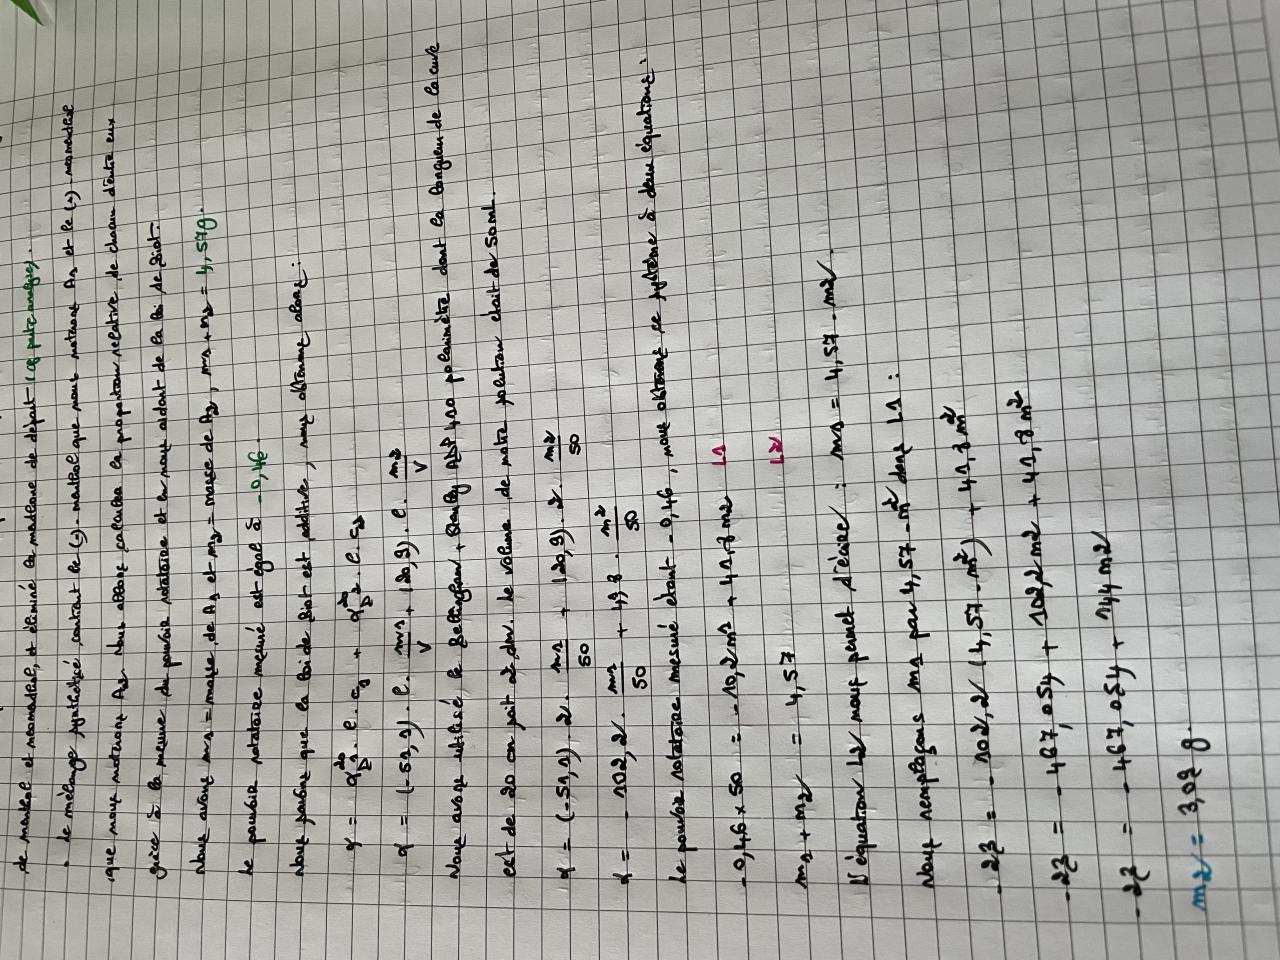 de menthol et néomenthol, et éliminé la menthone de départ (cf partie analyse).
• Le mélange synthétisé contient le (-)-menthol que nous noterons A1 et le (+)-néomenthol
que nous noterons A2. Nous allons calculer la proportion relative de chacun d'entre eux
grâce à la mesure du pouvoir rotatoire et en nous aidant de la loi de Biot.
Nous avons m1 = masse de A1 et m2 = masse de A2, m1 + m2 = 4,57g.
Le pouvoir rotatoire mesuré est égal à -0,46.
Nous savons que la loi de Biot est additive, nous obtenons alors :
α = α20D1 . l . c1 + α20D2 . l . c2
α = (-51,1) . l . m1/V + (20,9) . l . m2/V
Nous avons utilisé le Bellingham + Stanley ADP 410 polarimètre dont la longueur de la cuve
est de 20 cm soit 2 dm. Le volume de notre solution était de 50 mL.
α = (-51,1) . 2 . m1/50 + (20,9) . 2 . m2/50
α = - 102,2 . m1/50 + 41,8 . m2/50
Le pouvoir rotatoire mesuré étant -0,46, nous obtenons ce système à deux équations :
-0,46 x 50 = - 10,2 m1 + 41,8 m2 L1
m1 + m2 = 4,57 L2
L'équation L2 nous permet d'écrire : m1 = 4,57 - m2.
Nous remplaçons m1 par 4,57 - m2 dans L1 :
-23 = - 102,2 (4,57 - m2) + 41,8 m2
-23 = - 467,054 + 102,2 m2 + 41,8 m2
-23 = - 467,054 + 144 m2
m2 = 3,08 g.